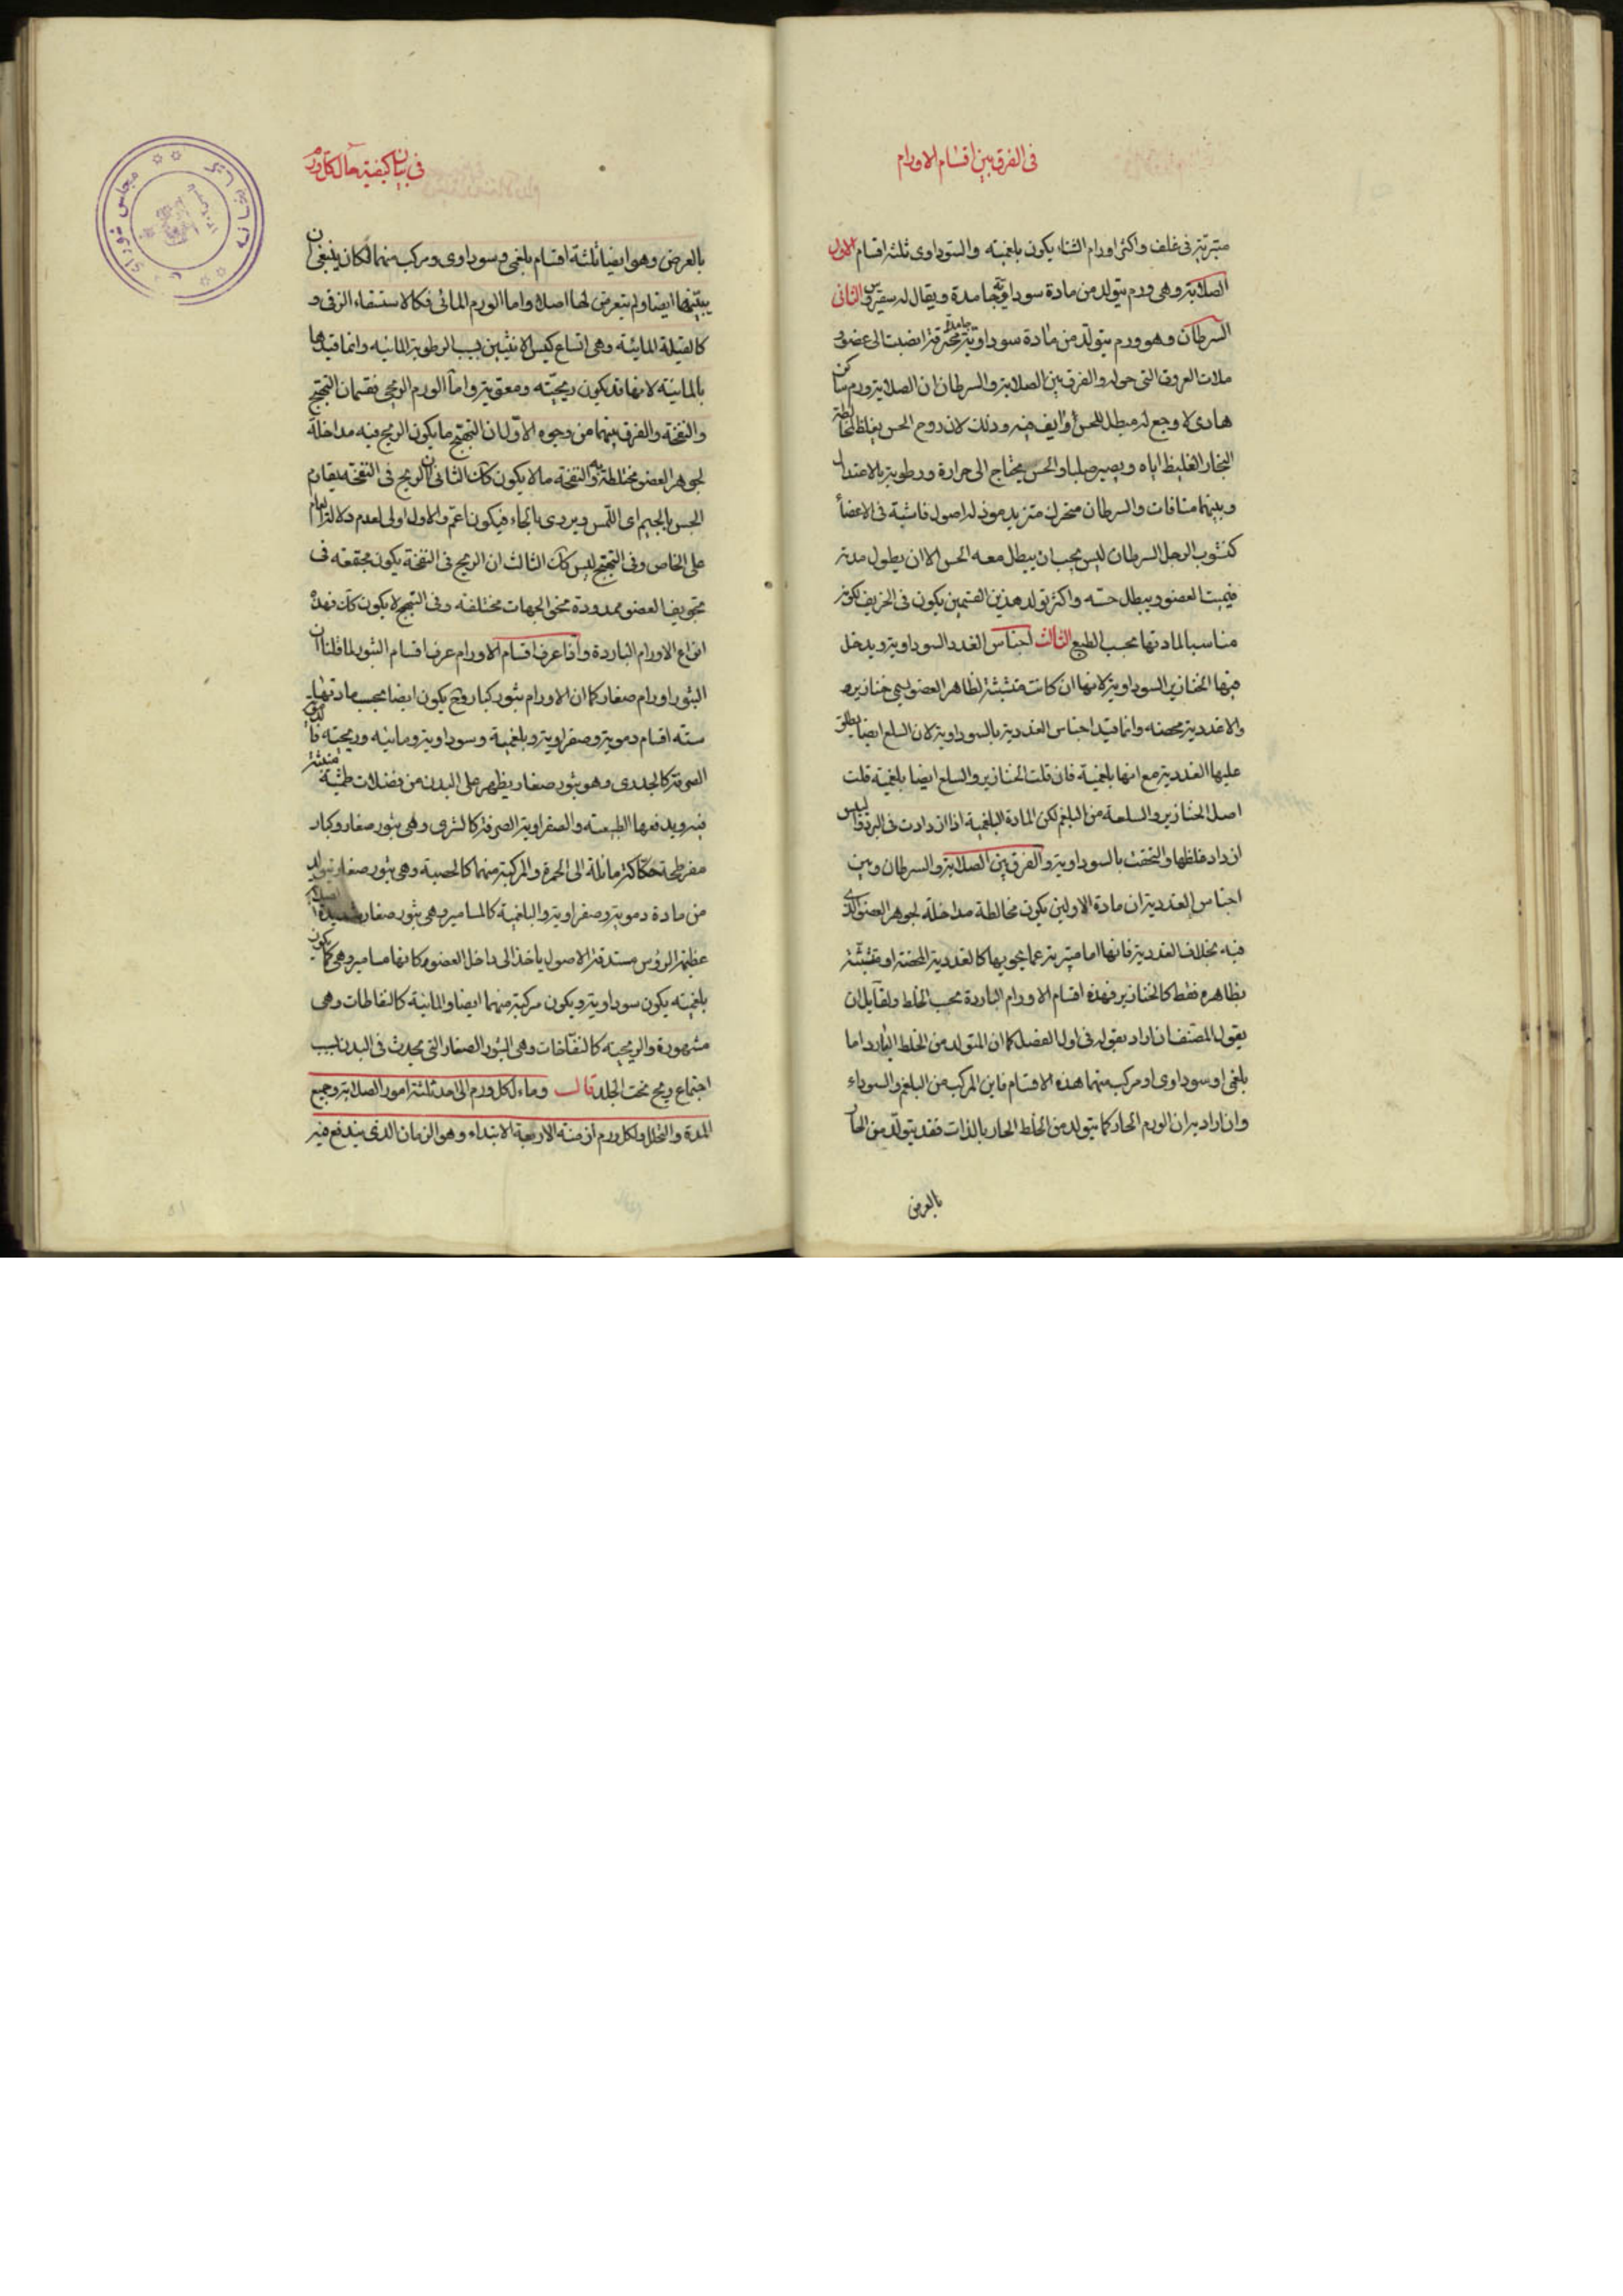 فى الفرق بين اقسام الاورام
متبرئة فى غلف واكثر اورام الشتاء يكون بلغمية والسوداوى ثلثة اقسام الاول
الصلابة وهى ورم يتولد من مادة سوداوية جامدة ويقال له سقيروس الثانى
السرطان وهو ورم يتولد من مادة سوداوية محترقة انصبت الى عضو و
ملات العروق التى حوله والفرق بين الصلابة والسرطان ان الصلابة ورم ساكن
هادى لا وجع له مبطل للحس او ايف فيه وذلك لان روح الحس يغلظ لمخالطة
البخار الغليظ اياه ويصير صلبا والحس يحتاج الى حرارة ورطوبة بالاعتدال
وبينهما منافات والسرطان متحرك متزيد موذ له اصول ناشبة فى الاعضأ
كنشوب ارجل السرطان ليس يجب ان يبطل معه الحس الا ان يطول مدته
فيميت العضو ويبطل حسه واكثر تولد هذين القسمين يكون فى الخريف لكونه
مناسبا لمادتها بحسب الطبع الثالث اجناس الغدد السوداوية ويدخل
فيها الخنازير السوداوية لانها ان كانت متشبثة لظاهر العضو يسمى خنازير و
والا غددية محضه وانما قيد اجناس الغددية بالسوداوية لان السلع ايضا يطلق
عليها الغددية مع انها بلغمية فان قلت الخنازير والسلع ايضا بلغمية قلت
اصل الخنازير والسلعة من البلغم لكن المادة البلغمية اذا ازدادت فى البرد واليبس
ازداد غلظها والتحقت بالسوداوية والفرق بين الصلابة والسرطان وبين
اجناس الغددية ان مادة الاولين يكون مخالطة مداخلة لجوهر العضو الذى
فيه بخلاف الغددية فانها اما متبرية عما يحويها كالغددية المحضة او متشبثة
بظاهره فقط كالخنازير فهذه اقسام الاورام الباردة بحسب الخلط ولقايل ان
يقول المصنف ان اراد بقوله فى اول الفصل كما ان المتولد من الخلط البارد اما
بلغمى او سوداوى او مركب منهما هذه الاقسام فاين المركب من البلغم والسوداء
وان اراد به ان الورم الحار كما يتولد من الخلط الحار بالذات فقد يتولد من الحار
بالعرض
فى بيان كيفية مآل كل ورم
بالعرض وهو ايضا ثلثة اقسام بلغمى وسوداوى ومركب منهما لكان ينبغى ان
يبينها ايضا ولم يتعرض لها اصلا واما الورم المائى فكالاستسقاء الزقى و
كالقيلة المائية وهى اتساع كيس الانثيين بسبب الرطوبة المائية وانما قيدها
بالمائية لانها قد يكون ريحيته ومعوية واما الورم الريحى فقسمان التهيج
والنفخة والفرق بينهما من وجوه الاول ان التهيج ما يكون الريح فيه مداخلة
لجوهر العضو مختلطة به والنفخة ما لا يكون كك الثانى ان الريح فى النفخة يقاوم
الجس بالجيم اى اللمس ويروى بالحاء فيكون اعم والاول اولى لعدم دلالة العام
على الخاص وفى التهيج ليس كك الثالث ان الريح فى النفخة يكون مجتمعة فى
تجويف العضو ممدودة نحو الجهات مختلفة وفى التهيج لا يكون كك فهذه
انواع الاورام الباردة واذا عرف اقسام الاورام عرف اقسام البثور لما قلنا ان
البثور اورام صغار كما ان الاورام بثور كبار وح يكون ايضا بحسب مادتها
سته اقسام دموية وصفراوية وبلغمية وسوداوية ومائيه وريحيته فالدموية
الصرفة كالجدرى وهو بثور صغار يظهر على البدن من فضلات طمثية منبثة
فيه ويدفعها الطبيعة والصفراوية الصرفة كالشرى وهى بثور صغار وكبار
مفرطحة حكاكة مائلة الى الحمرة والمركبة منهما كالحصبة وهى بثور صغار يتولد
من مادة دموية وصفراوية والبلغمية كالمسامير وهى بثور صغار شديدة الصلابة
عظيمة الرؤس مستدقة الاصول ياخذ الى داخل العضو وكانها مسامير وهى كما يكون
بلغميته يكون سوداوية ويكون مركبة منهما ايضا والمائية كالنفاطات وهى
مشهورة والريحية كالنفاخات وهى البثور الصغار التى يحدث فى البدن بسبب
اجتماع ريح تحت الجلد قال ومآء لكل ورم الى احد ثلثة امور الصلابة وجمع
المدة والتحلل ولكل ورم ازمنة الاربعة الابتداء وهو الزمان الذى يندفع فيه
مجلس شوراى